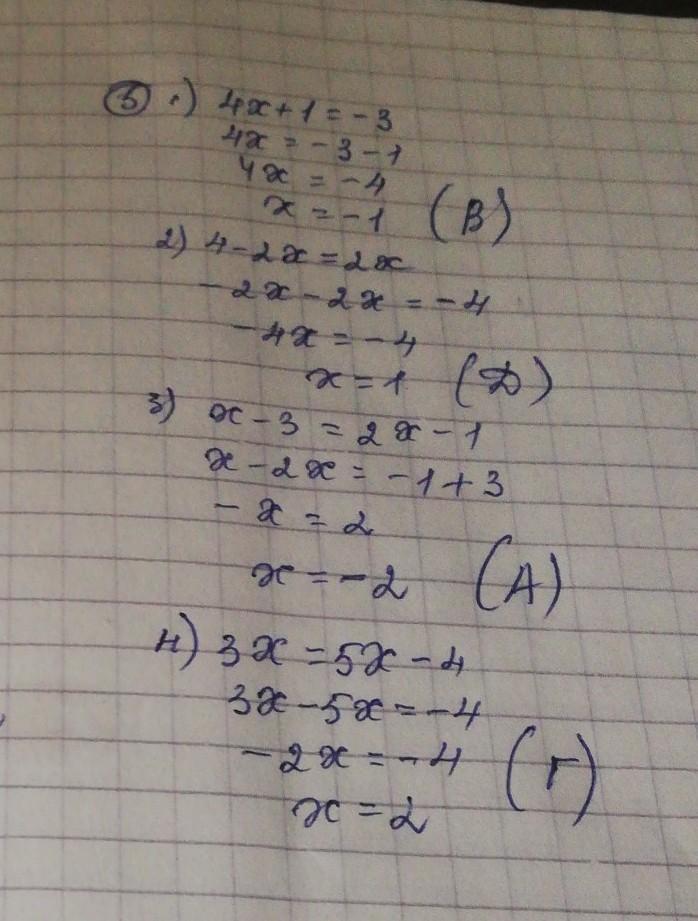 5 1) 4x+1=-3
4x=-3-1
4x=-4
x=-1 (В)
2) 4-2x=2x
-2x-2x=-4
-4x=-4
x=1 (Д)
3) x-3=2x-1
x-2x=-1+3
-x=2
x=-2 (А)
4) 3x=5x-4
3x-5x=-4
-2x=-4 (Г)
x=2